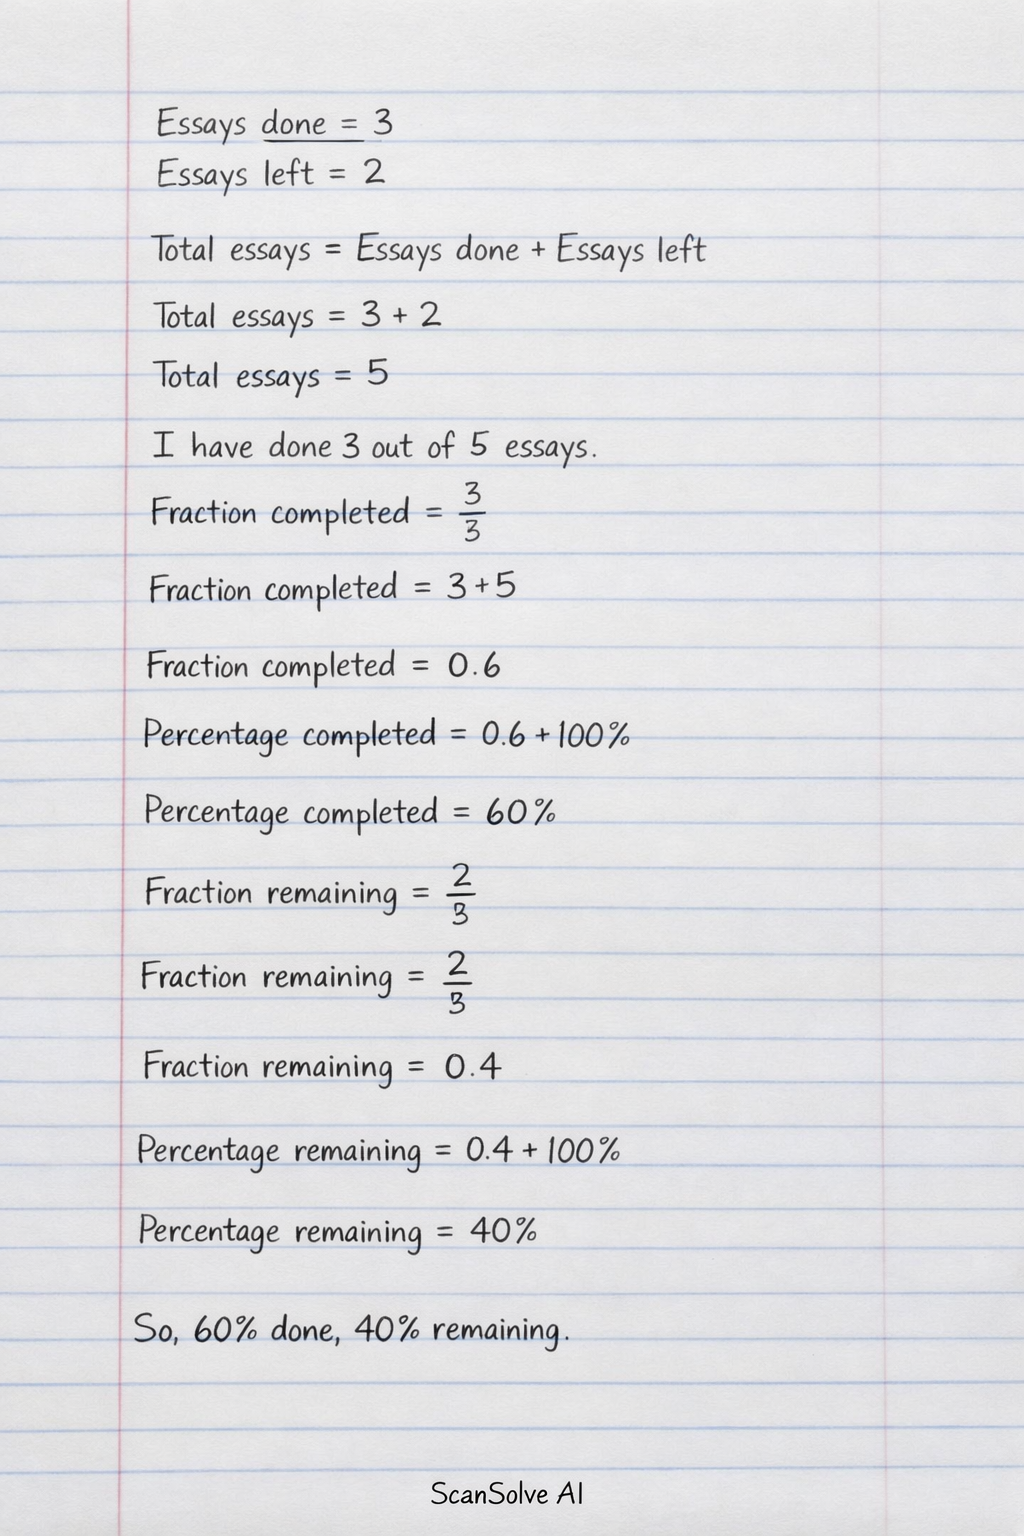 Essays done = 3
Essays left = 2
Total essays = Essays done + Essays left
Total essays = 3 + 2
Total essays = 5
I have done 3 out of 5 essays.
Fraction completed = 3/3
Fraction completed = 3 + 5
Fraction completed = 0.6
Percentage completed = 0.6 + 100%
Percentage completed = 60%
Fraction remaining = 2/3
Fraction remaining = 2/3
Fraction remaining = 0.4
Percentage remaining = 0.4 + 100%
Percentage remaining = 40%
So, 60% done, 40% remaining.
ScanSolve AI